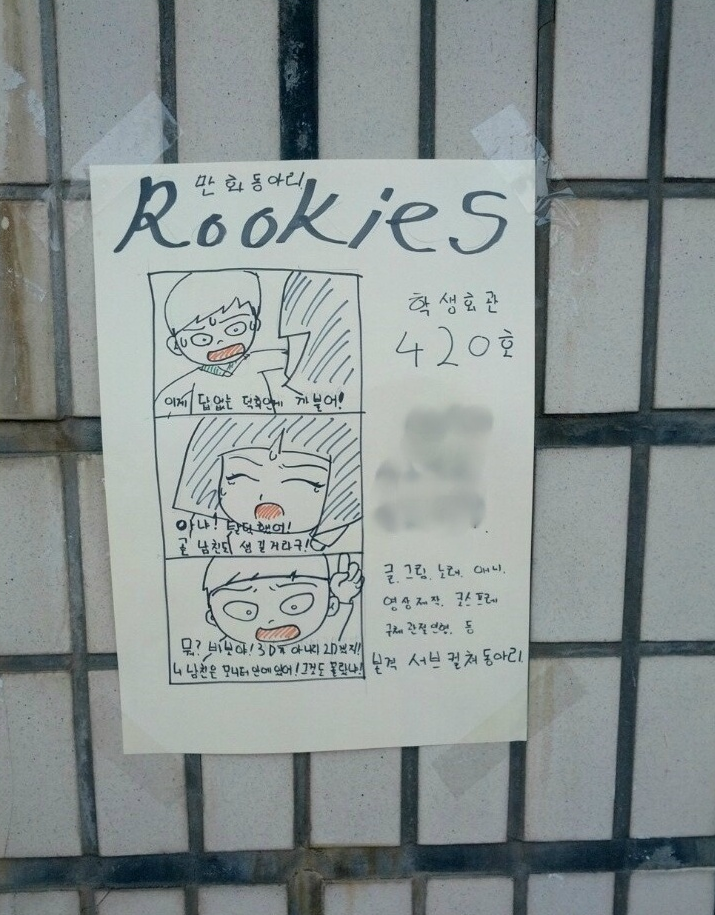 만화동아리
Rookies
이제 답없는 덕후인게 까불어!
아냐! 탈덕했어!
곧 남친도 생길거라구!
뭐? 바보야! 3D가 아니라 2D겠지!
니 남친은 모니터 안에 있어! 그것도 몰랐냐!
학생회관
420호
글, 그림, 노래, 애니,
영상제작, 코스프레
구체관절인형, 등
본격 서브컬쳐동아리